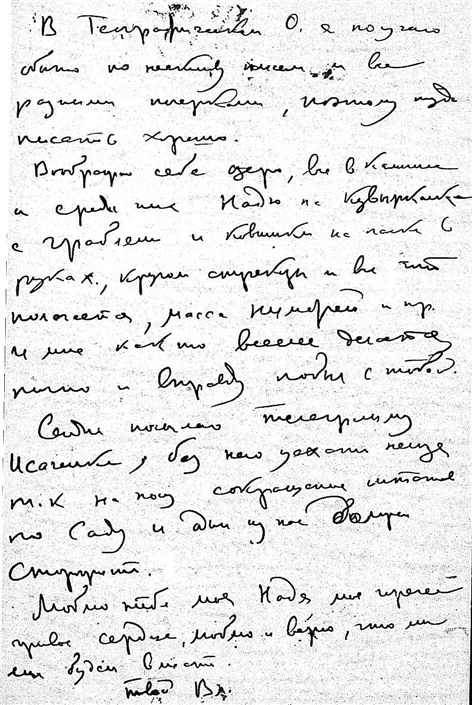 В Географическом О. я получаю
обычно по нескольку писем и все
разными почерками, поэтому надо
писать хорошо.
Воображаю себе озеро, все в камыше
и среди них Надю на
с граблями и ковшиком на палке в
руках, кругом стрекозы и все что
полагается, масса и пр.
и мне как то веселее делается
точно и вправду с тобой.
Сегодня посылаю телеграмму
Исаченко, без него уехать нельзя
т.к на носу сокращение штатов
по Саду и один из нас должен
сторожить.
Люблю тебя моя Надя
сердце, люблю и верю, что мы
будем вместе.
твой Вл.